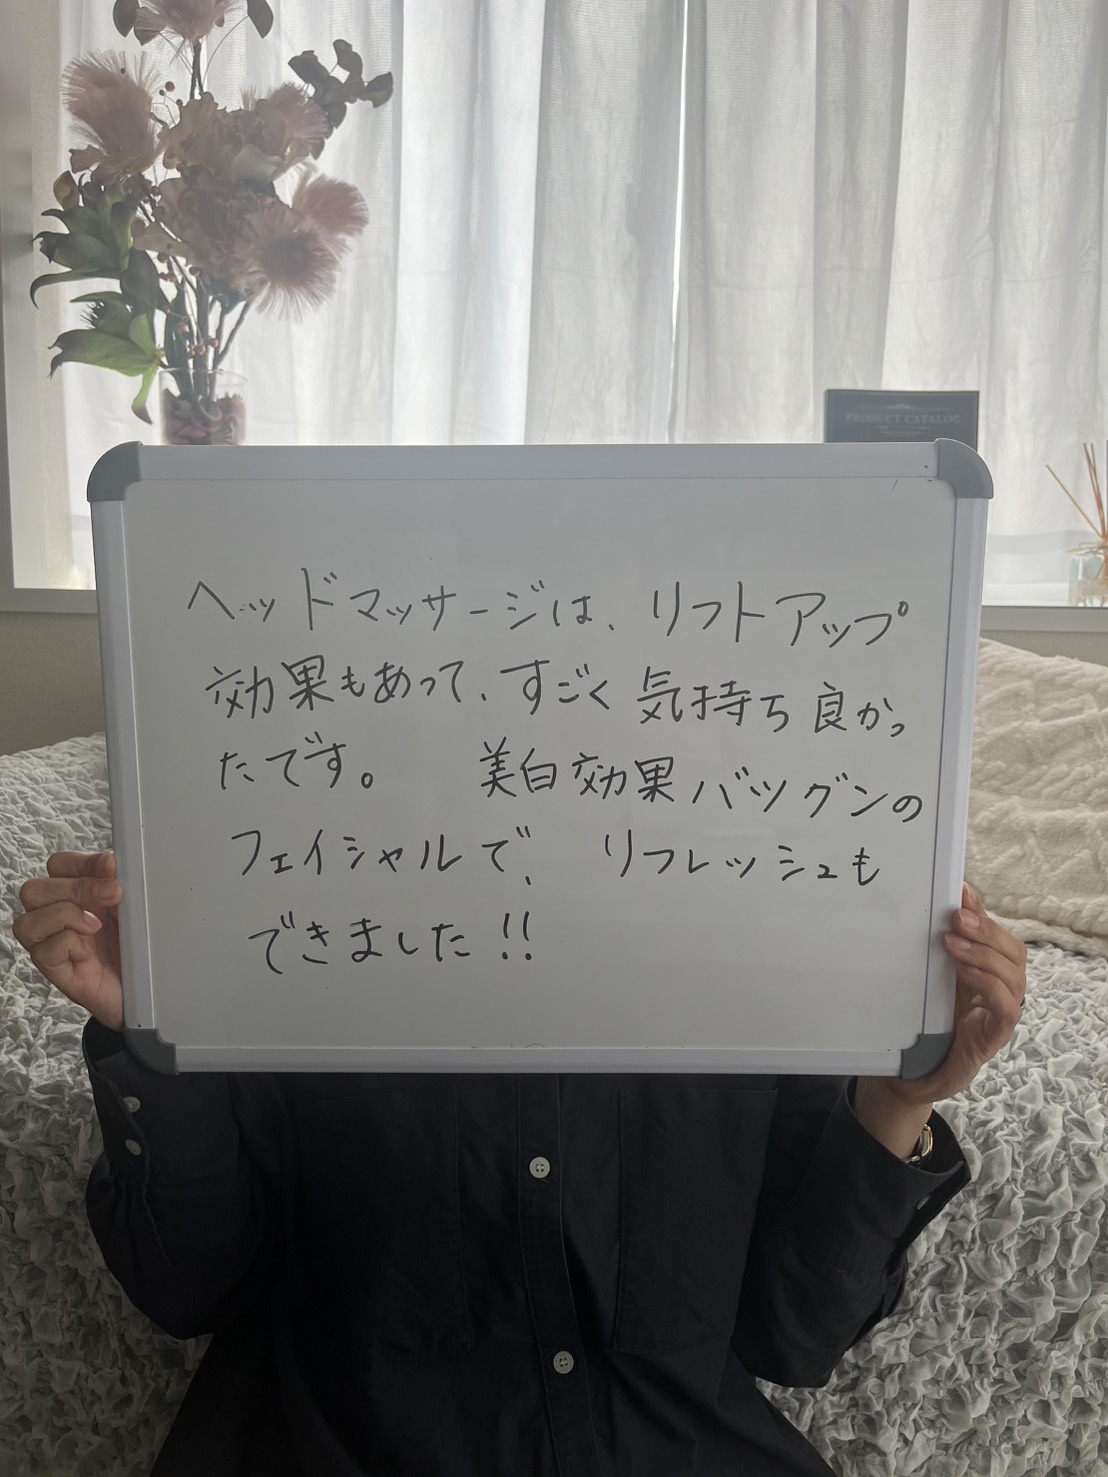 PRODUCT CATALOG
ヘッドマッサージは、リフトアップ
効果もあって、すごく気持ち良かっ
たです。 美白効果バツグンの
フェイシャルで、リフレッシュも
できました!!